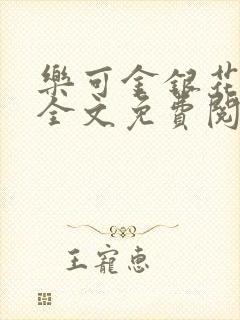 樂可金銀花
全文免費閱
王寵惠